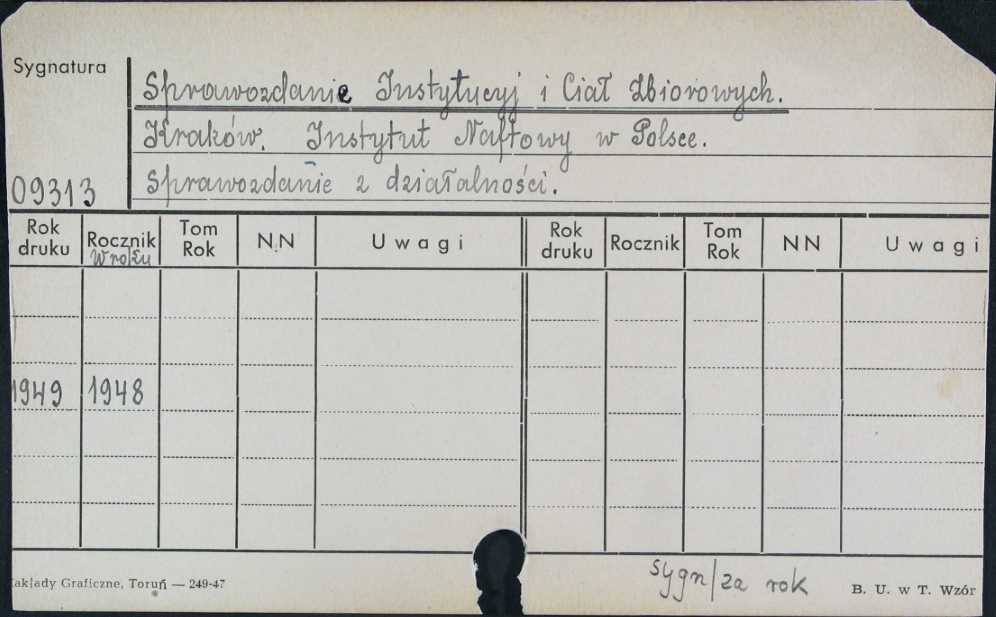 Sygnatura
Sprawozdanie Instytucyj i Ciał Zbiorowych.
Kraków. Instytut Naftowy w Polsce.
Sprawozdanie z działalności.
09313
Rok druku Rocznik W roku Tom Rok N.N Uwagi Rok druku Rocznik Tom Rok NN Uwagi
1949 1948
akłady Graficzne, Toruń — 249-47
sygn/za rok
B. U. w T. Wzór